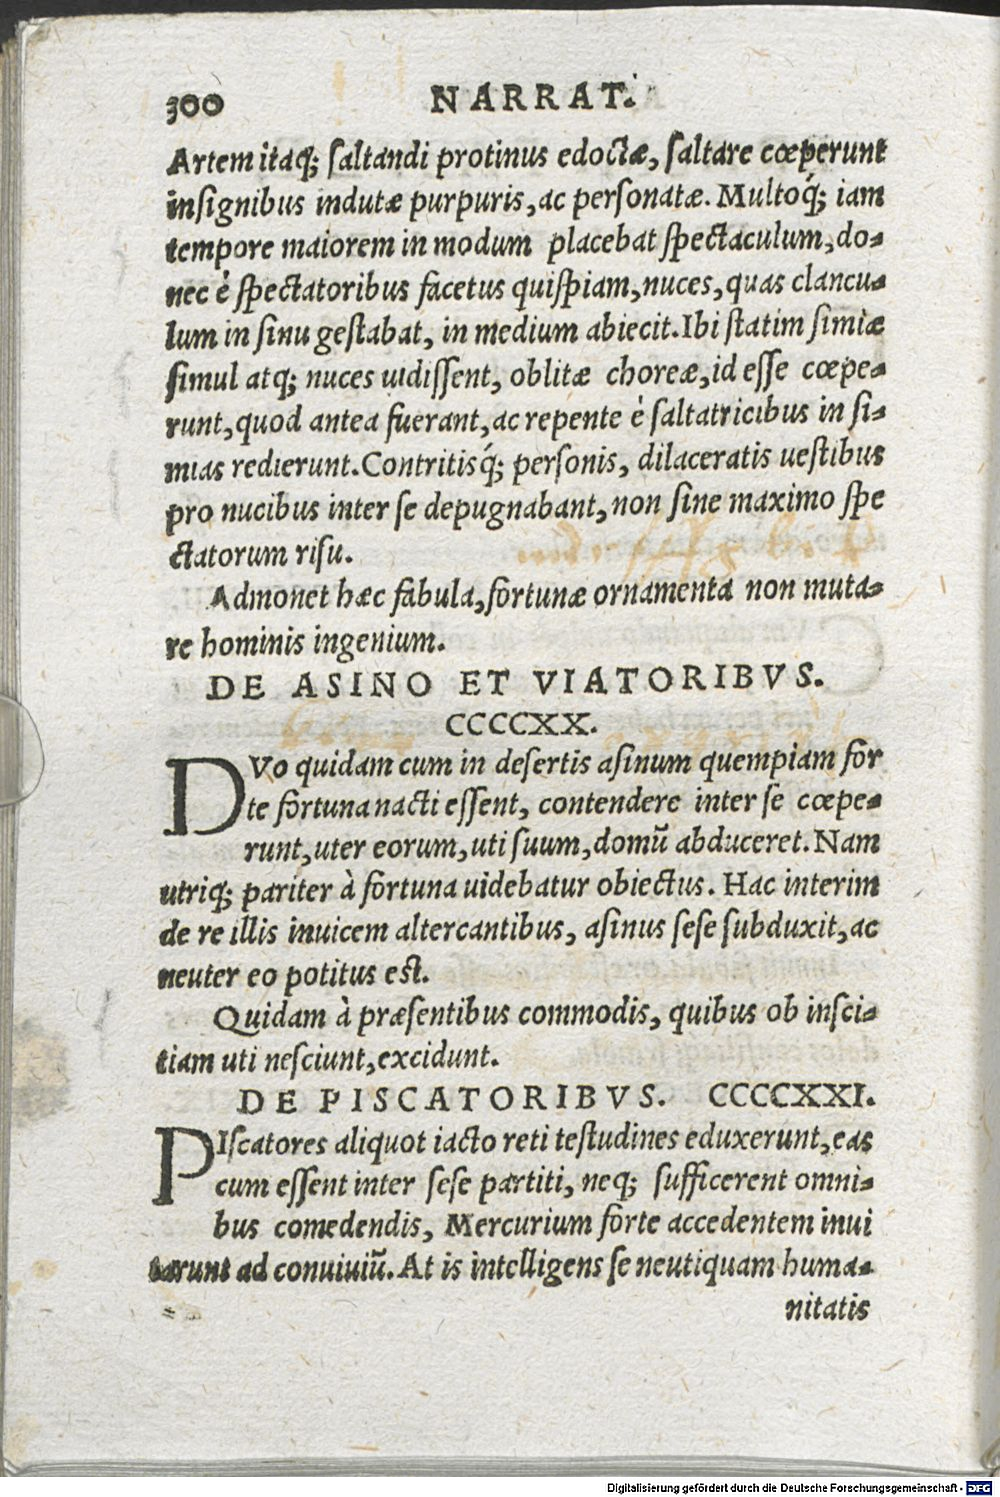 300 NARRAT.
Artem itaq; ſaltandi protinus edoctæ, ſaltare cœperunt
inſignibus indutæ purpuris, ac perſonatæ. Multoq́; iam
tempore maiorem in modum placebat ſpectaculum, do-
nec è ſpectatoribus facetus quiſpiam, nuces, quas clancu-
lum in ſinu geſtabat, in medium abiecit. Ibi ſtatim ſimiæ
ſimul atq; nuces uidiſſent, oblitæ choreæ, id eſſe cœpe-
runt, quod antea fuerant, ac repente è ſaltatricibus in ſi-
mias redierunt. Contritisq́; perſonis, dilaceratis ueſtibus
pro nucibus inter ſe depugnabant, non ſine maximo ſpe
ctatorum riſu.
Admonet hæc fabula, fortunæ ornamenta non muta-
re hominis ingenium.
DE ASINO ET VIATORIBVS.
CCCCXX.
DVo quidam cum in deſertis aſinum quempiam for
te fortuna nacti eſſent, contendere inter ſe cœpe-
runt, uter eorum, uti ſuum, domũ abduceret. Nam
utriq; pariter à fortuna uidebatur obiectus. Hac interim
de re illis inuicem altercantibus, aſinus ſeſe ſubduxit, ac
neuter eo potitus eſt.
Quidam à præſentibus commodis, quibus ob inſci-
tiam uti neſciunt, excidunt.
DE PISCATORIBVS. CCCCXXI.
PIſcatores aliquot iacto reti teſtudines eduxerunt, eas
cum eſſent inter ſeſe partiti, neq; ſufficerent omni-
bus comedendis, Mercurium forte accedentem inui
tarunt ad conuiuiũ. At is intelligens ſe neutiquam huma-
nitatis
Digitalisierung gefördert durch die Deutsche Forschungsgemeinschaft - DFG